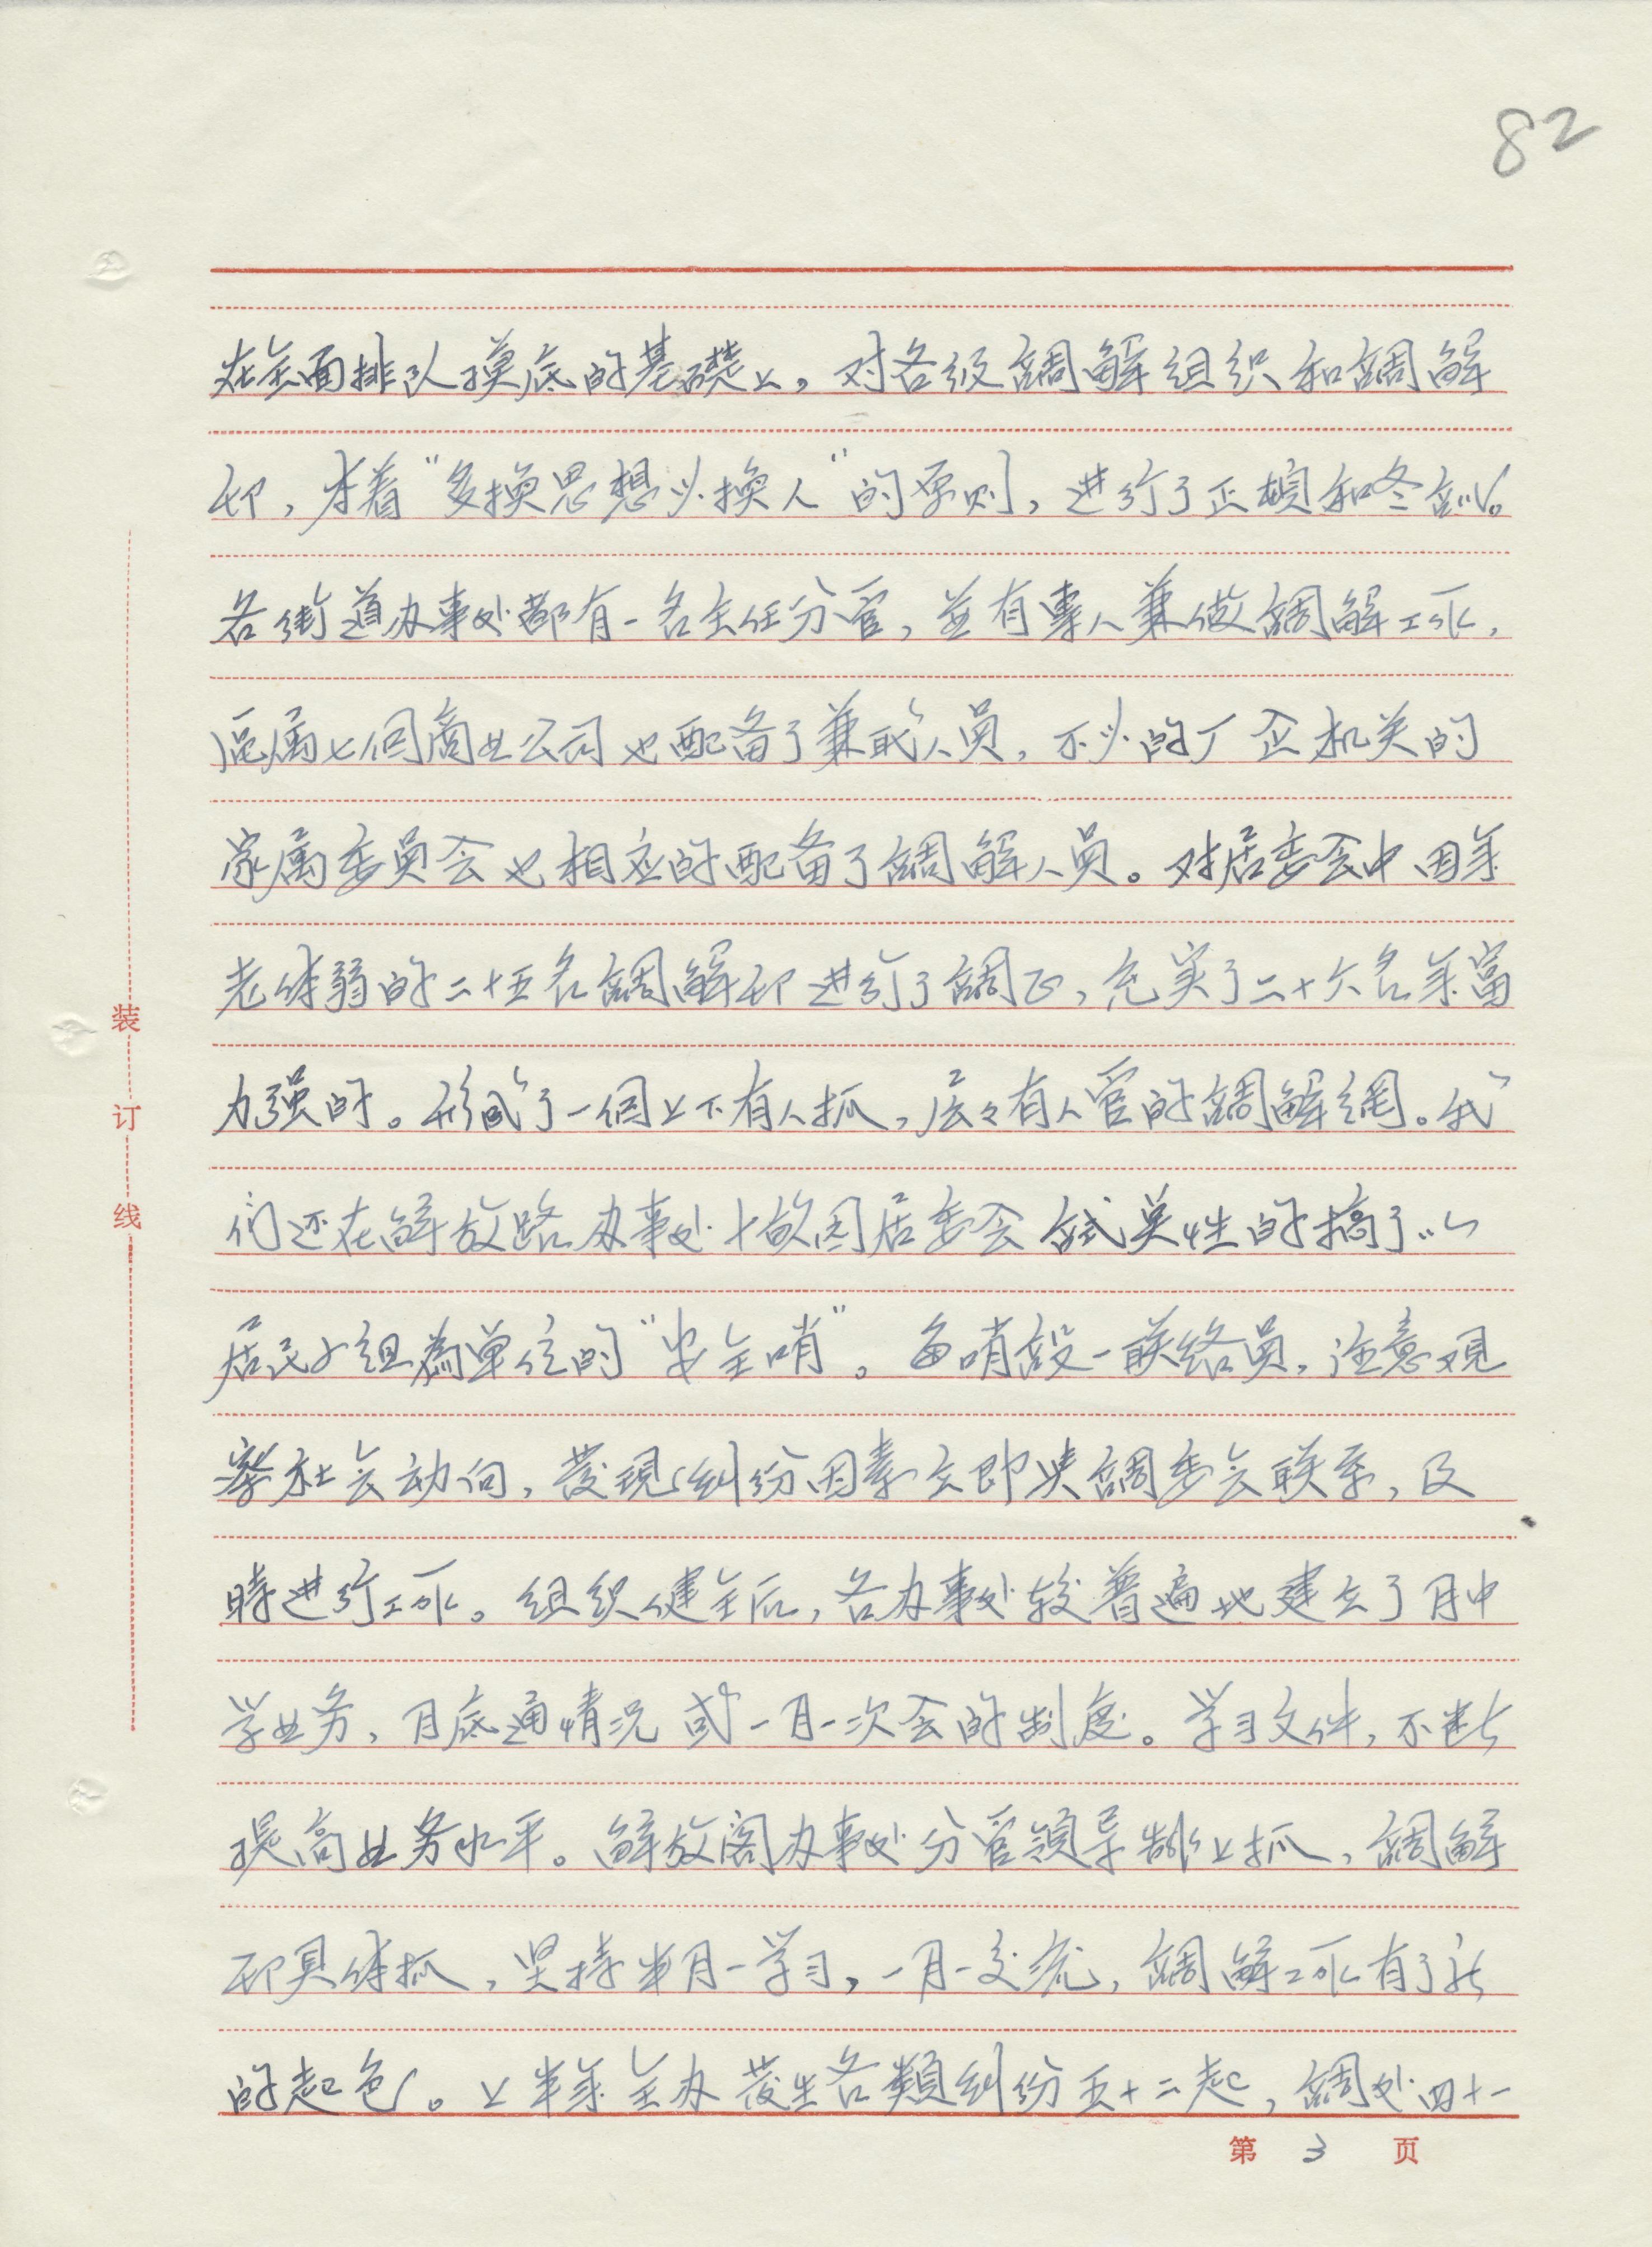 82
在全面排队摸底的基礎上，对各级調解组织和調解
干部，本着“多換思想少換人”的原则，进行了正頓和冬訓。
各街道办事处都有一名主任分管，並有專人兼做調解工作，
區属七個商业公司也配备了兼职人员，不少的厂企机关的
家属委员会也相应的配备了調解人员。对居委会中因年
老体弱的二十五名調解干部进行了調正，充实了二十六名年富
力强的。形成了一個上下有人抓，层々有人管的調解網。我
们还在解放路办事处十畝园居委会試点性的搞了以
居民小组為单位的“安全哨”。每哨設一联络员，注意观
察社会动向，發現纠纷因素立即与調委会联系，及
時进行工作。组织健全后，各办事处较普遍地建立了月中
学业务，月底通情况或一月一次会的制度。学习文件，不断
提高业务水平。解放阁办事处分管領导靠上抓，調解
干部具体抓，坚持半月一学习，一月一交流，調解工作有了新
的起色。上半年全办發生各類纠纷五十二起，調处四十一
第 3 页
装
订
线